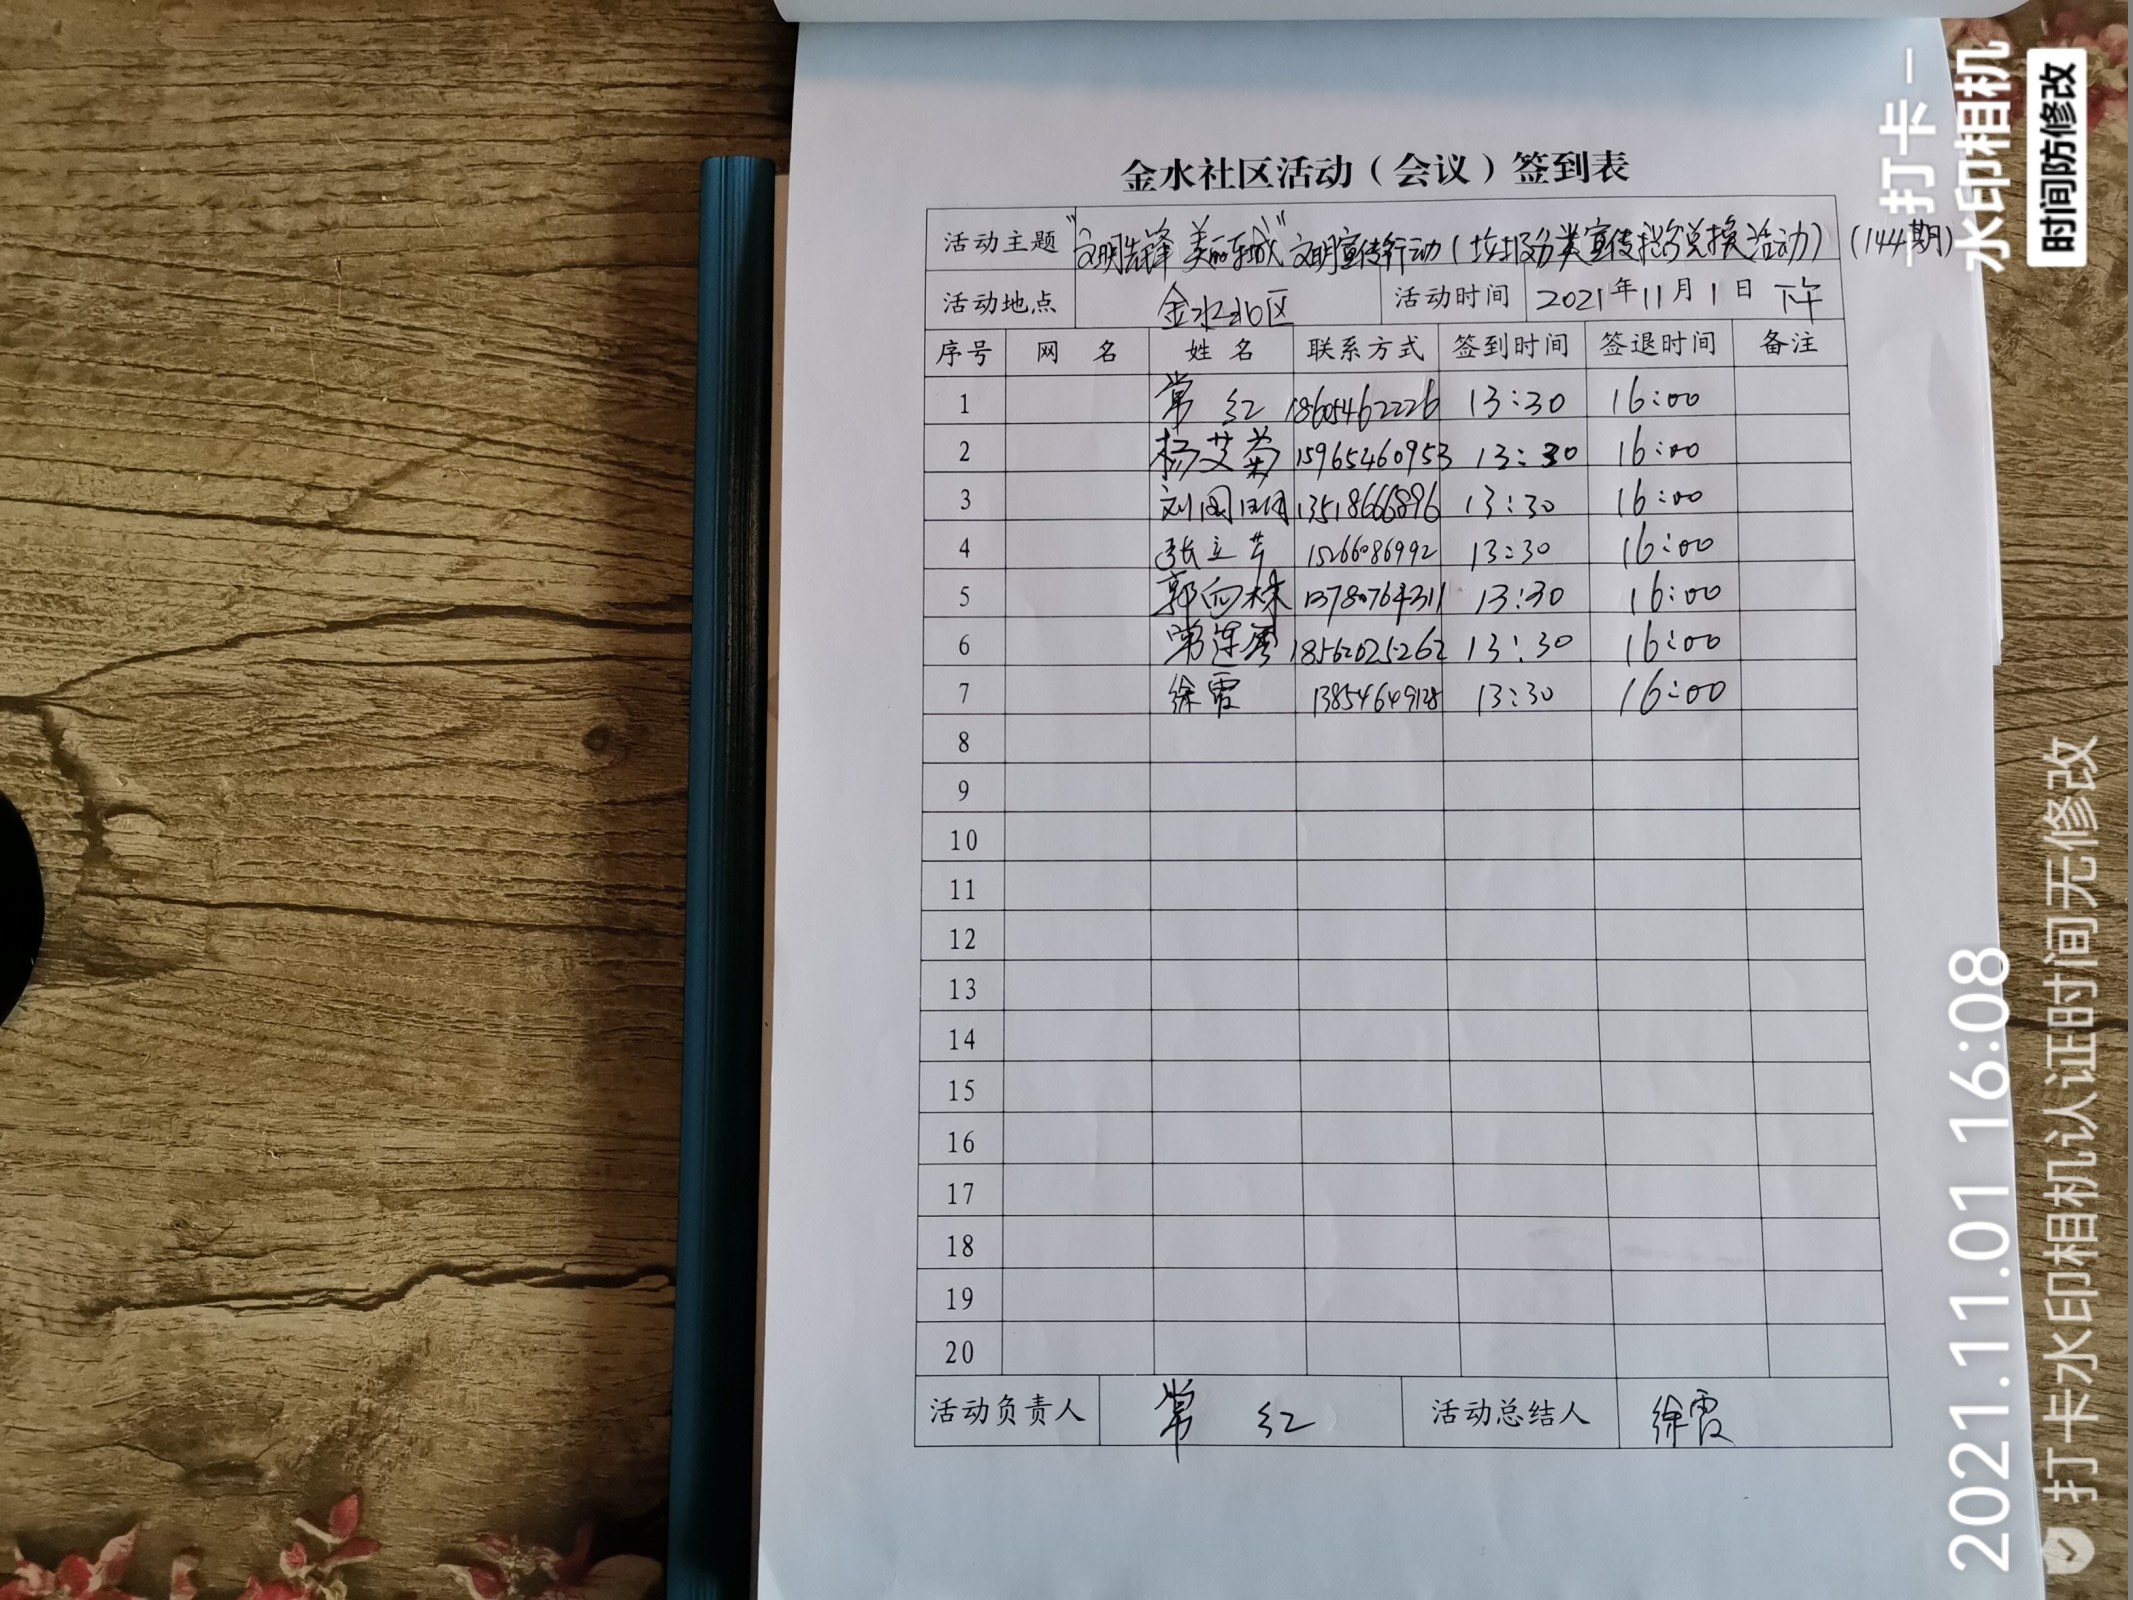 金水社区活动（会议）签到表
活动主题 “文明先锋 美丽东城”文明宣传行动（垃圾分类宣传积分兑换活动）（144期）
活动地点 金水北区 活动时间 2021年11月1日 下午
序号 网 名 姓 名 联系方式 签到时间 签退时间 备注
1 常 红 18605462226 13:30 16:00
2 杨艾菊 15965460953 13:30 16:00
3 刘国 13518666896 13:30 16:00
4 张立芹 15266086992 13:30 16:00
5 郭向妹 13780764311 13:30 16:00
6 常莲秀 18562025262 13:30 16:00
7 徐霞 13854649128 13:30 16:00
8
9
10
11
12
13
14
15
16
17
18
19
20
活动负责人 常 红 活动总结人 徐霞
打卡
水印相机
时间防修改
2021.11.01 16:08
打卡水印相机认证时间无修改